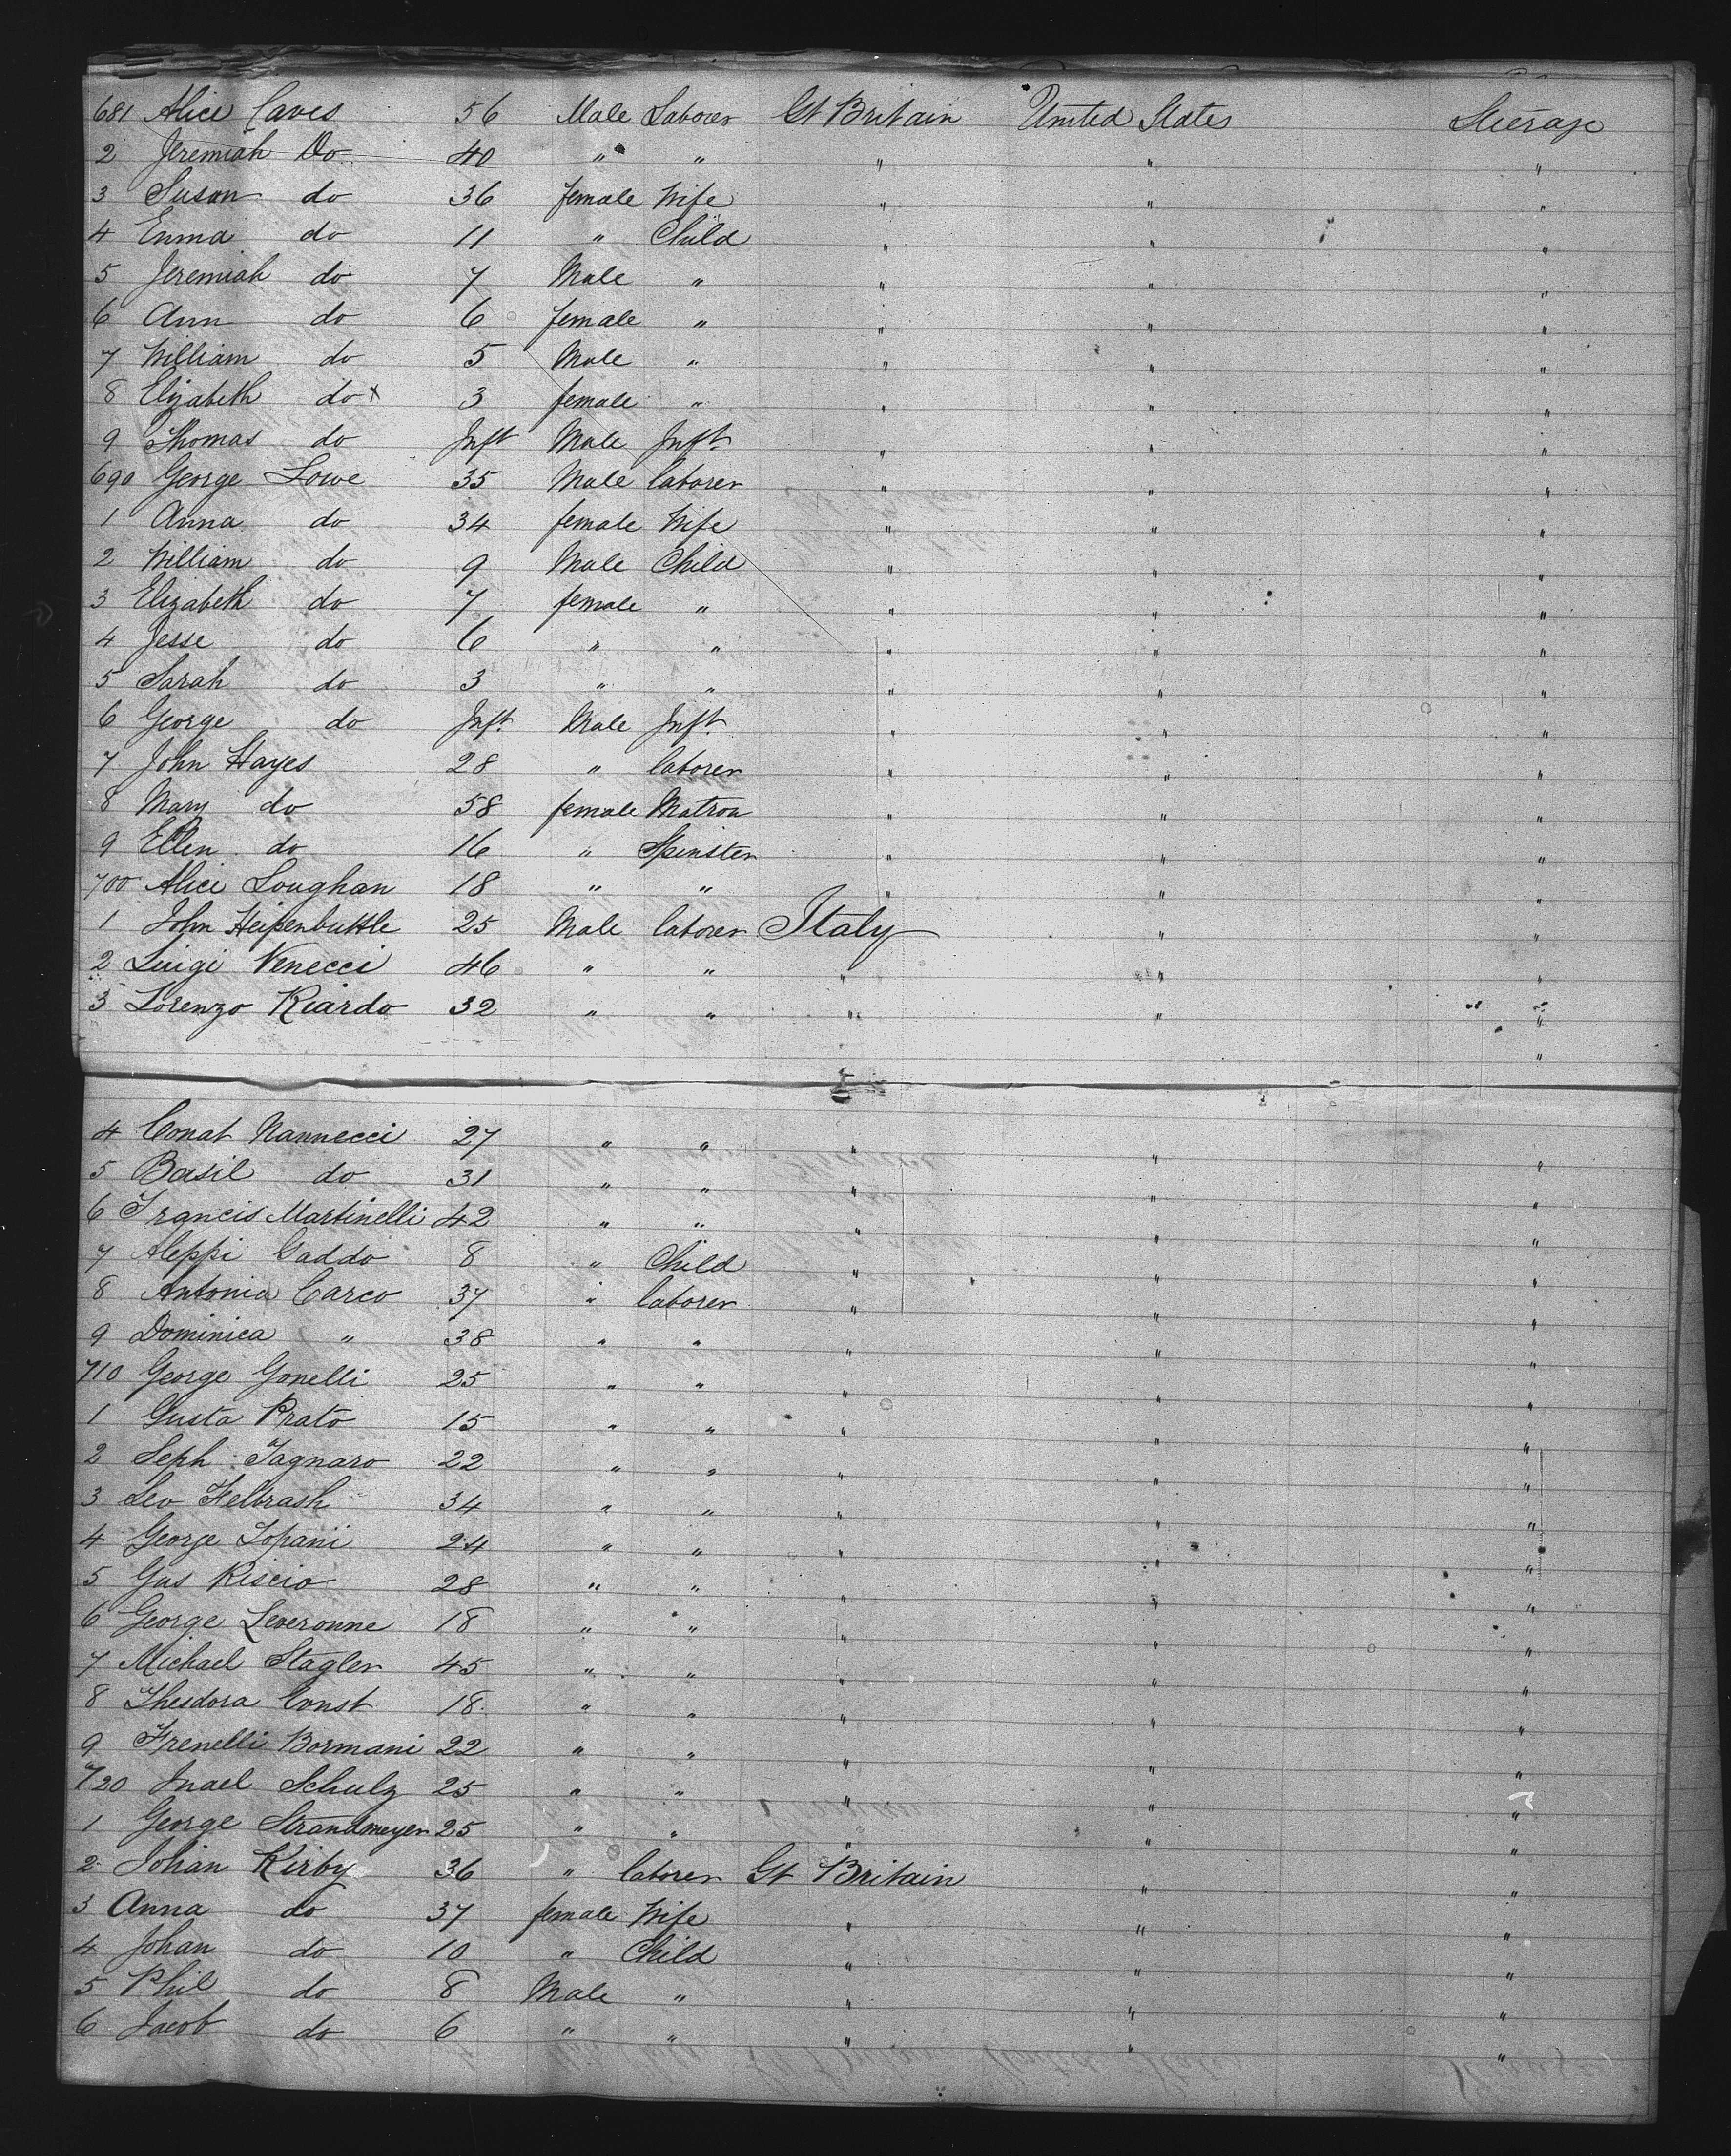 681 Alice Caves 56 Male Laborer Gt Britain United States Steerage
2 Jeremiah Do 40 " " " " "
3 Susan do 36 female Wife " " "
4 Emma do 11 " Child " " "
5 Jeremiah do 7 Male " " " "
6 Ann do 6 female " " " "
7 William do 5 Male " " " "
8 Elizabeth do x 3 female " " " "
9 Thomas do Inft Male Inft " " "
690 George Lowe 35 Male laborer " " "
1 Anna do 34 female Wife " " "
2 William do 9 Male Child " " "
3 Elizabeth do 7 female " " " "
4 Jesse do 6 " " " " "
5 Sarah do 3 " " " " "
6 George do Inft. Male Inft. " " "
7 John Hayes 28 " laborer " " "
8 Mary do 58 female Matron " " "
9 Ellen do 16 " Spinster " " "
700 Alice Loughan 18 " " " " "
1 John Heipenbuttle 25 Male laborer Italy " "
2 Luigi Venecci 46 " " " " "
3 Lorenzo Riardo 32 " " " " "
"
4 Conat Nannecci 27 " " " " "
5 Basil do 31 " " " " "
6 Francis Martinelli 42 " " " " "
7 Aleppi Gaddo 8 " Child " " "
8 Antonia Carco 37 " laborer " " "
9 Dominica " 38 " " " " "
710 George Gonelli 25 " " " " "
1 Gusta Prato 15 " " " " "
2 Seph Tagnaro 22 " " " " "
3 Leo Helbrash 34 " " " " "
4 George Lopani 24 " " " " "
5 Gus Riscio 28 " " " " "
6 George Leveronne 18 " " " " "
7 Michael Stagler 45 " " " " "
8 Theodora Const 18 " " " " "
9 Frenelli Bormani 22 " " " " "
720 Inael Schulz 25 " " " " "
1 George Strandmeyer 25 " " " " "
2 Johan Kirby 36 " laborer Gt Britain " "
3 Anna do 37 female Wife " " "
4 Johan do 10 " Child " " "
5 Phil do 8 Male " " " "
6 Jacob do 6 " " " " "